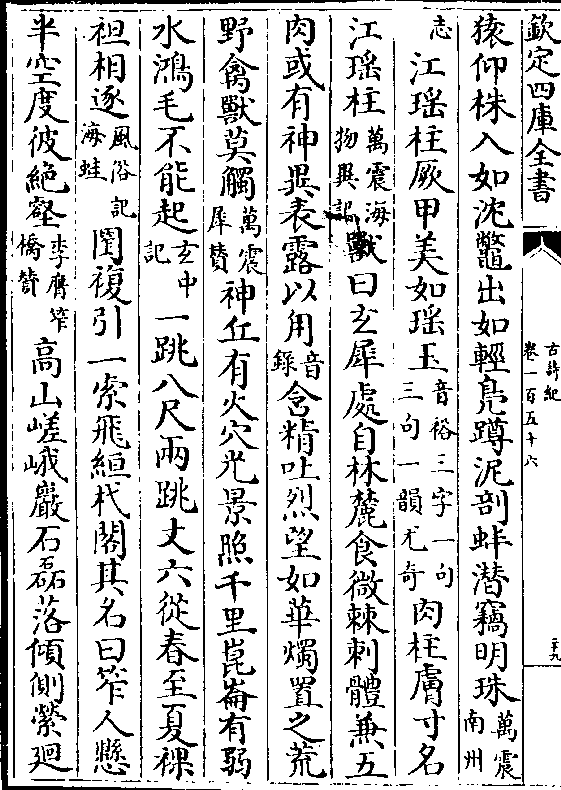 欽定四庫全書
古詩紀
卷一百五十六
二十九
猿仰株入如沈鼈出如輕鳧蹲泥剖蚌潜竊明珠萬震南州
志江瑶柱厥甲美如瑶玉音裕三字一句三句一韻尤奇肉柱膚寸名
江瑶柱萬震海物異記獸曰玄犀處自林麓食㣲棘刺體兼五
肉或有神異表露以角音録含精吐烈望如華燭置之荒
野禽獸莫觸萬震犀贊神丘有火穴光景照千里崑崙有弱
水鴻毛不能起玄中記一跳八尺兩跳丈六從春至夏裸
袒相逐風俗記海蛙闠複引一索飛絙杙閣其名曰笮人懸
半空度彼絶壑李膺笮橋贊高山嵯峨巖石磊落傾側縈迴